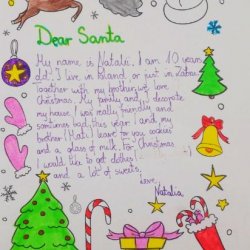 Dear Santa
My name is Natalia. I am 10 years
old. I live in Poland or just in Zabór.
Together with my brother, we love
Christmas. My family and I decorate
my house. I was really friendly and
sometimes bad, this year. I and my
brother (Mati) leave for you cookies
and a glass of milk. For Christmas
I would like to get clothes :-)
and a lot of sweets.
Love,
Natalia